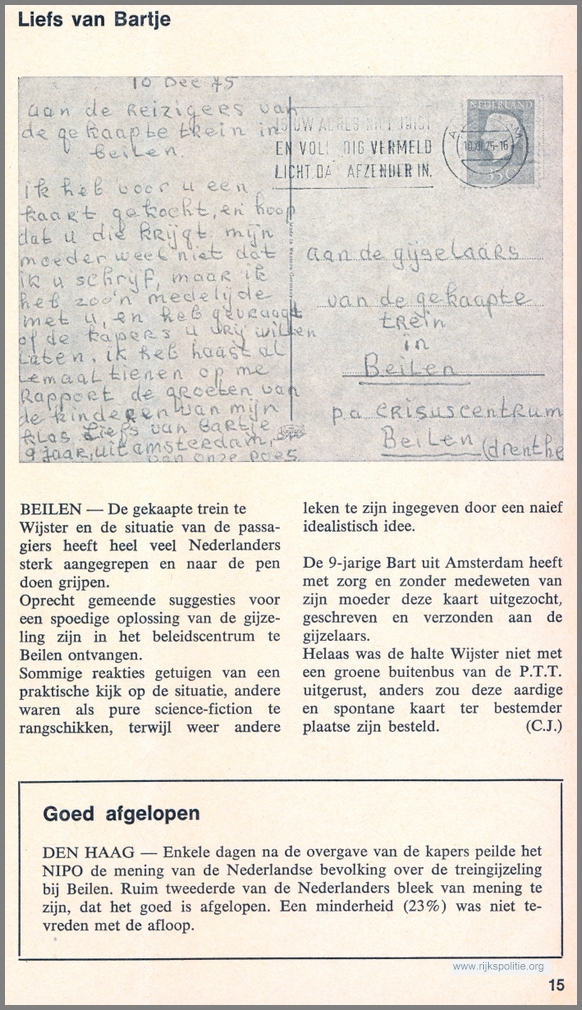 Liefs van Bartje
10 Dec 75
aan de Reizigers van
de gekaapte trein in
Beilen.
ik heb voor u een
kaart gekocht, en hoop
dat u die krijgt mijn
moeder weet niet dat
ik u schrijf, maar ik
heb zoo'n medelijde
met u, en heb gevraagt
of de kapers u vrij willen
laten, ik heb haast al
lemaal tienen op me
Rapport de groeten van
de kinderen van mijn
klas Liefs van Bartje
9 jaar, uit amsterdam,
van onze poes
IS UW ADRES NIET JUIST
EN VOLL DIG VERMELD
LICHT DA AFZENDER IN.
NEDERLAND
aan de gijselaars
van de gekaapte
trein
in
Beilen
p.a crisuscentrum
Beilen (drenthe
BEILEN — De gekaapte trein te
Wijster en de situatie van de passa-
giers heeft heel veel Nederlanders
sterk aangegrepen en naar de pen
doen grijpen.
Oprecht gemeende suggesties voor
een spoedige oplossing van de gijze-
ling zijn in het beleidscentrum te
Beilen ontvangen.
Sommige reakties getuigen van een
praktische kijk op de situatie, andere
waren als pure science-fiction te
rangschikken, terwijl weer andere
leken te zijn ingegeven door een naief
idealistisch idee.
De 9-jarige Bart uit Amsterdam heeft
met zorg en zonder medeweten van
zijn moeder deze kaart uitgezocht,
geschreven en verzonden aan de
gijzelaars.
Helaas was de halte Wijster niet met
een groene buitenbus van de P.T.T.
uitgerust, anders zou deze aardige
en spontane kaart ter bestemder
plaatse zijn besteld. (C.J.)
Goed afgelopen
DEN HAAG — Enkele dagen na de overgave van de kapers peilde het
NIPO de mening van de Nederlandse bevolking over de treingijzeling
bij Beilen. Ruim tweederde van de Nederlanders bleek van mening te
zijn, dat het goed is afgelopen. Een minderheid (23%) was niet te-
vreden met de afloop.
www.rijkspolitie.org
15